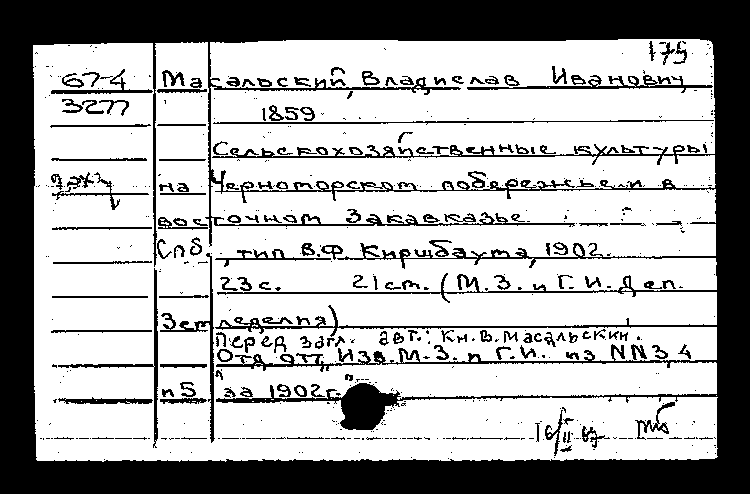 175
67-4 Масальский, Владислав Иванович
3277 1859
Сельскохозяйственные культуры
2 экз на Черноморском побережье и в
восточном Закавказье.
Спб., тип В.Ф. Киршбаума, 1902.
23с. 21cm. (М.З. и Г.И. Деп.
Земледелия)
Перед загл. авт.: Кн.В.Масальский.
Отд отт, Изв.М.З. и Г.И. из NN3,4
и5 за 1902г."
16/II 67